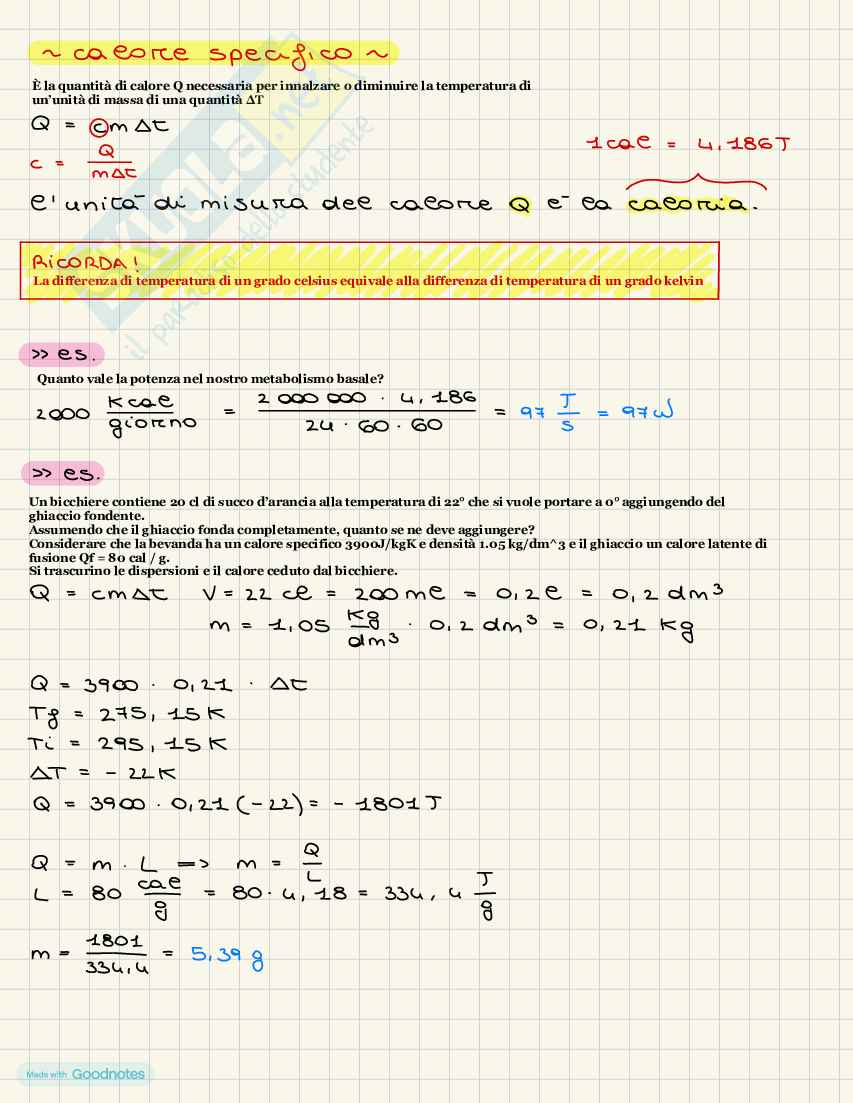 ~ calore specifico ~
È la quantità di calore Q necessaria per innalzare o diminuire la temperatura di
un'unità di massa di una quantità ΔT
Q = cmΔt
c = Q / mΔt
1cal = 4,186J
l'unità di misura del calore Q è la caloria.
RICORDA!
La differenza di temperatura di un grado celsius equivale alla differenza di temperatura di un grado kelvin
>> es.
Quanto vale la potenza nel nostro metabolismo basale?
2000 kcal / giorno = 2 000 000 · 4,186 / 24 · 60 · 60 = 97 J/s = 97W
>> es.
Un bicchiere contiene 20 cl di succo d'arancia alla temperatura di 22° che si vuole portare a 0° aggiungendo del
ghiaccio fondente.
Assumendo che il ghiaccio fonda completamente, quanto se ne deve aggiungere?
Considerare che la bevanda ha un calore specifico 3900J/kgK e densità 1.05 kg/dm^3 e il ghiaccio un calore latente di
fusione Qf = 80 cal / g.
Si trascurino le dispersioni e il calore ceduto dal bicchiere.
Q = cmΔt V = 22 cl = 200 ml = 0,2l = 0,2 dm³
m = 1,05 kg/dm³ · 0,2 dm³ = 0,21 kg
Q = 3900 · 0,21 · Δt
Tf = 275,15K
Ti = 295,15K
ΔT = -22K
Q = 3900 · 0,21 (-22) = - 1801 J
Q = m · L => m = Q/L
L = 80 cal/g = 80 · 4,18 = 334,4 J/g
m = 1801 / 334,4 = 5,39 g
SKUOLA.net
il paradiso dello studente
Made with Goodnotes